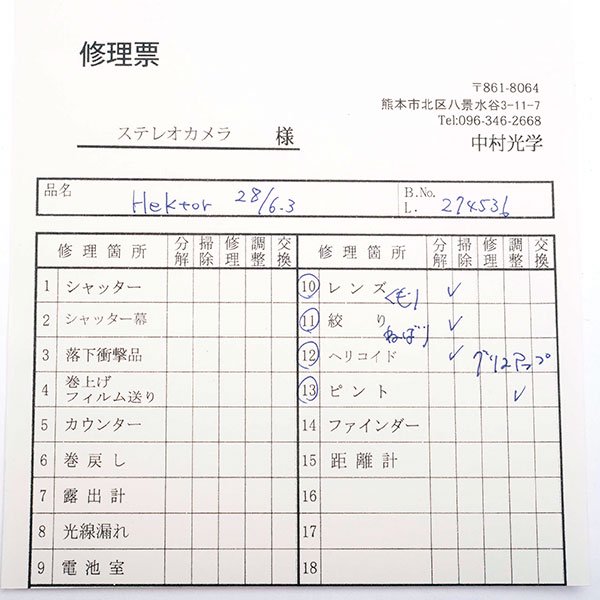 修理票
〒861-8064
熊本市北区八景水谷3-11-7
Tel:096-346-2668
中村光学
ステレオカメラ 様
品名 Hektor 28/6.3 B.No. L. 274536
修理箇所 分解 掃除 修理 調整 交換 修理箇所 分解 掃除 修理 調整 交換
1 シャッター 10 レンズ くもり ✓
2 シャッター幕 11 絞り ねばり ✓
3 落下衝撃品 12 ヘリコイド ✓ グリスアップ
4 巻上げ フィルム送り 13 ピント ✓
5 カウンター 14 ファインダー
6 巻戻し 15 距離計
7 露出計 16
8 光線漏れ 17
9 電池室 18